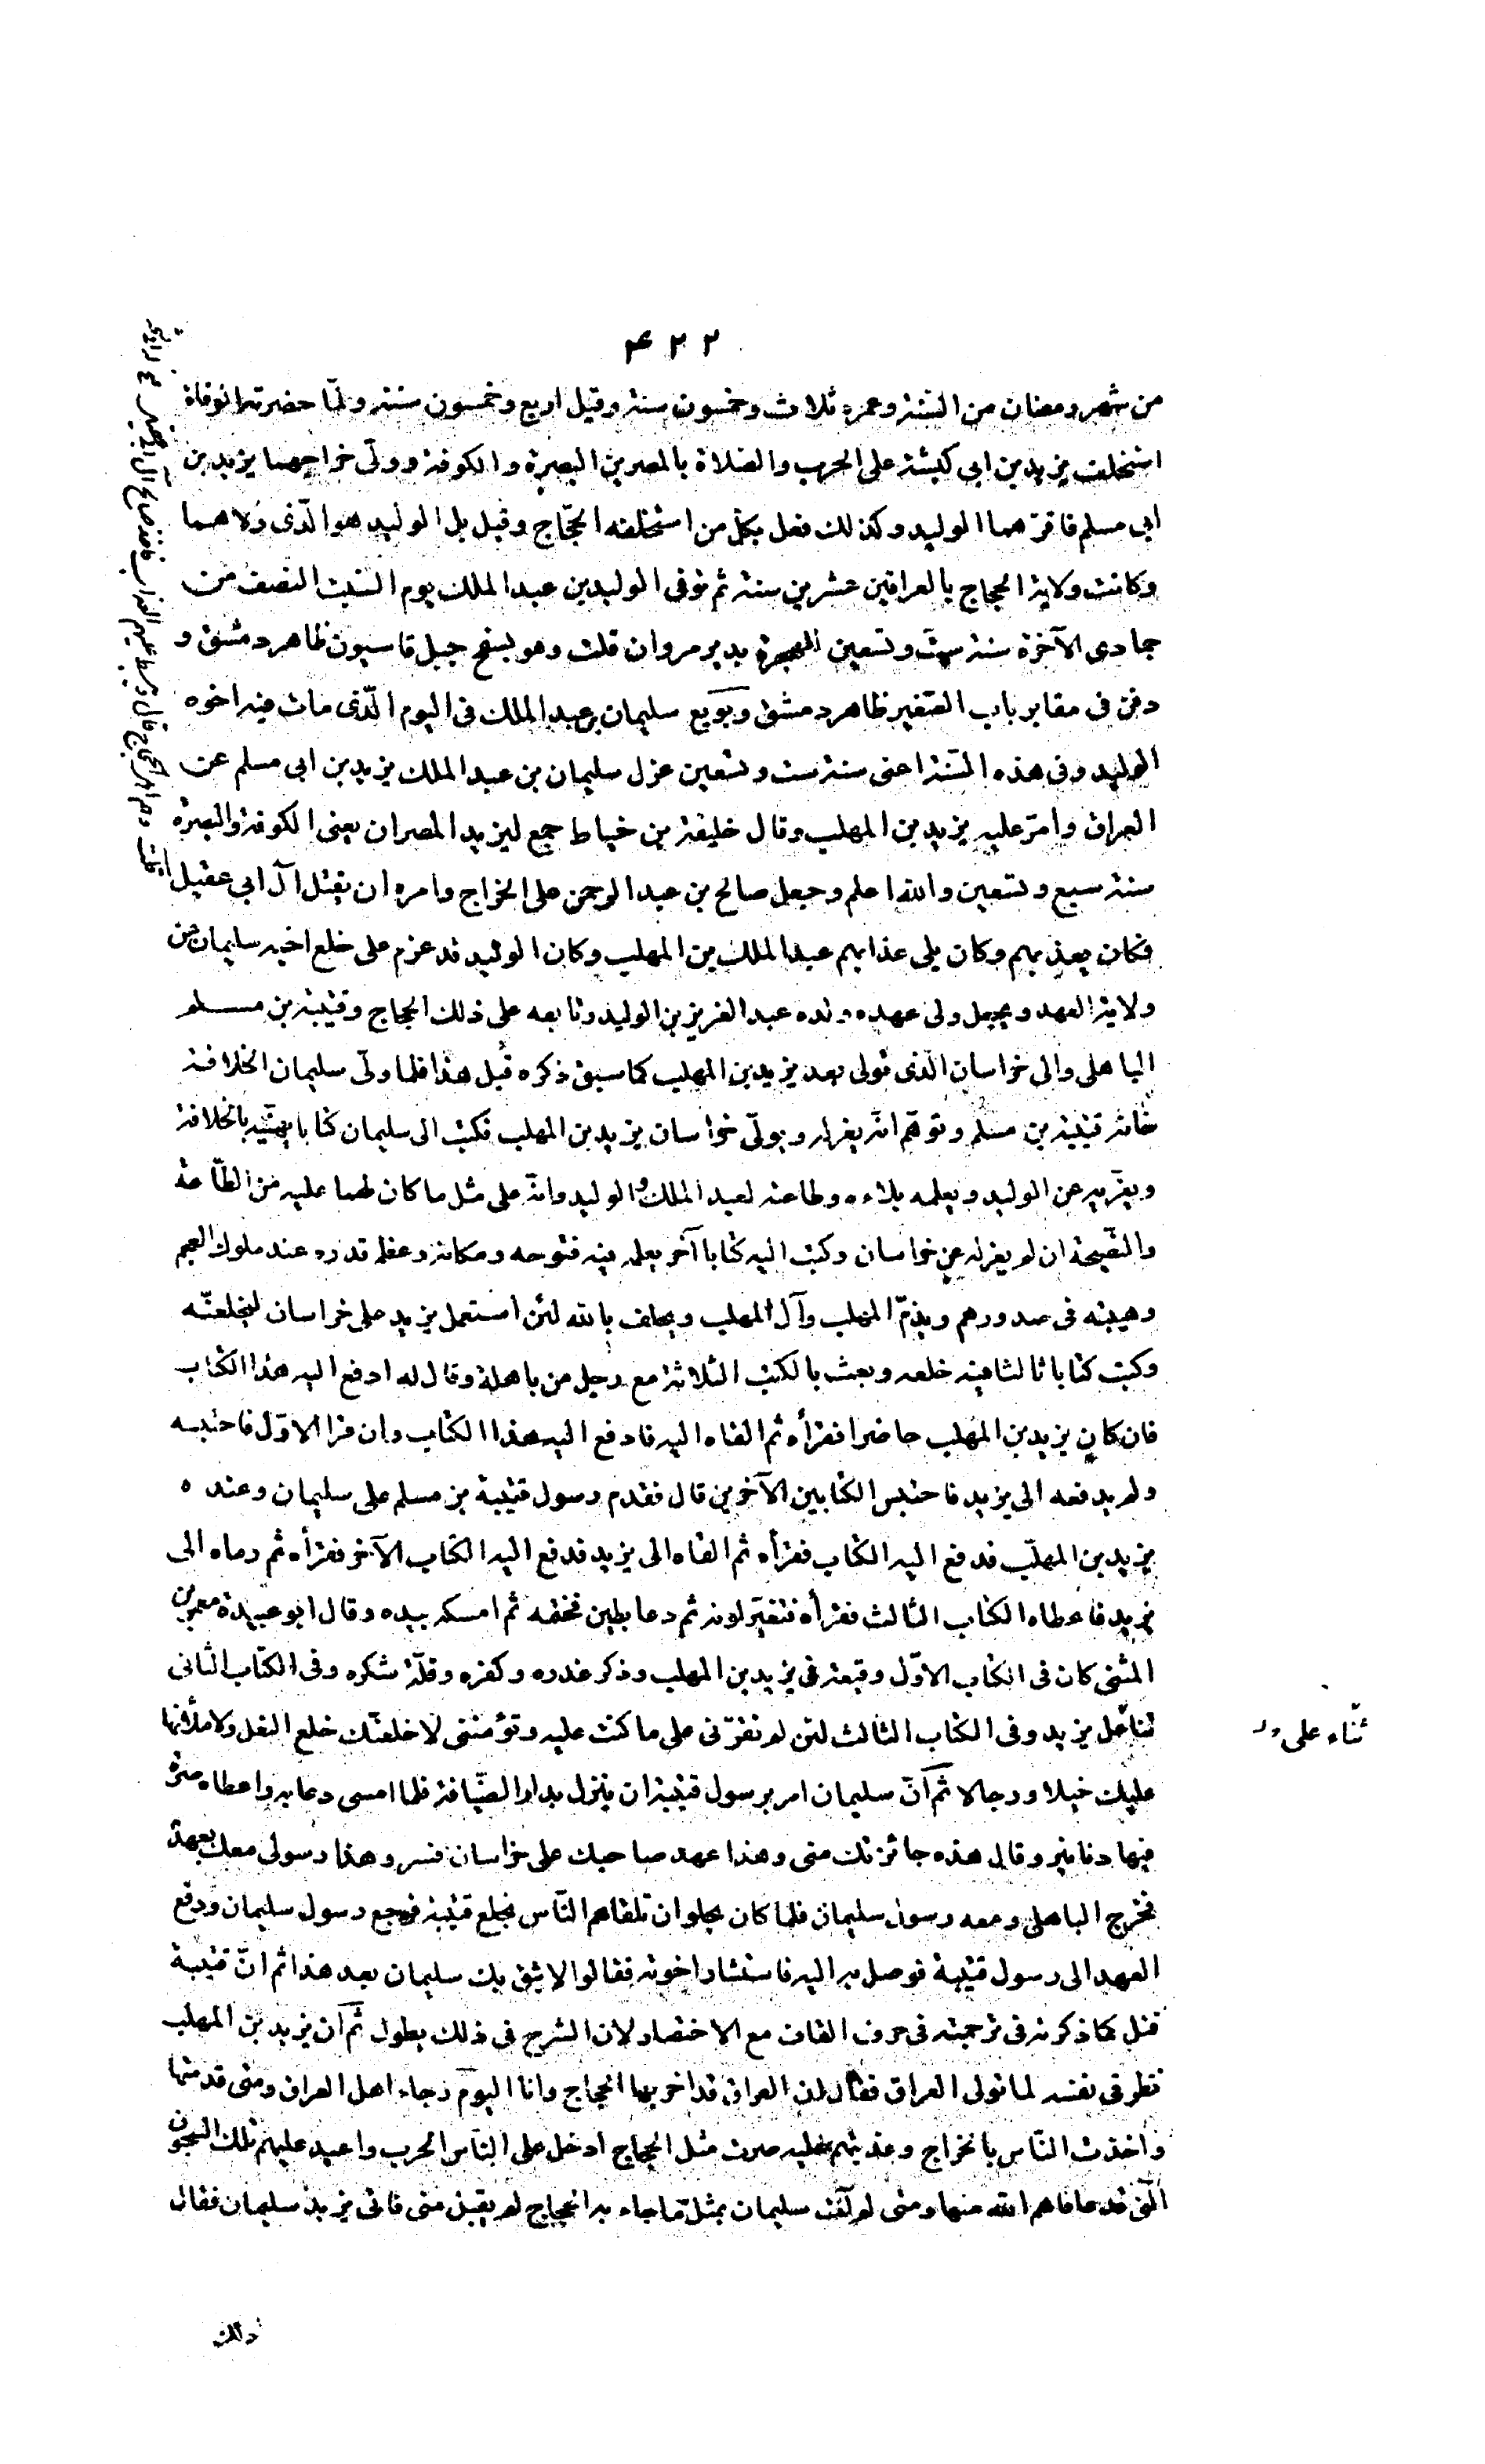 ۴۲۲
من شهر رمضان من السنة وعمره ثلاث وخمسون سنة وقيل اربع وخمسون سنة ولمّا حضرته الوفاة
استخلف يزيد بن ابى كبشة على الحرب والصّلاة بالمصرين البصرة والكوفة وولّى خراجهما يزيد بن
ابى مسلم فاقرّهما الوليد وكذلك فعل بكلّ من استخلفه الحجّاج وقيل بل الوليد هو الّذى ولاهما
وكانت ولاية الحجاج بالعراقين عشرين سنة ثم توفى الوليد بن عبد الملك يوم السّبت النصف من
جمادى الآخرة سنة ستّ وتسعين للهجرة بدير مروان قلت وهو بسفح جبل قاسيون ظاهر دمشق و
دفن فى مقابر باب الصّغير ظاهر دمشق وبويع سليمان بن عبد الملك فى اليوم الّذى مات فيه اخوه
الوليد وفى هذه السّنة اعنى سنة ست وتسعين عزل سليمان بن عبد الملك يزيد بن ابى مسلم عن
العراق وامّر عليه يزيد بن المهلب وقال خليفة بن خياط جمع ليزيد المصران يعنى الكوفة والبصرة
سنة سبع وتسعين والله اعلم وجعل صالح بن عبد الرحمن على الخراج وامره ان يقتل آل ابى عقيل
فكان يعذبهم وكان يلى عذابهم عبد الملك بن المهلب وكان الوليد قد عزم على خلع اخيه سليمان من
ولاية العهد ويجعل ولى عهده ولده عبد العزيز بن الوليد وتابعه على ذلك الحجاج وقتيبة بن مسلم
الباهلى والى خراسان الّذى تولى بعد يزيد بن المهلب كما سبق ذكره قبل هذا فلما ولّى سليمان الخلافة
خافه قتيبة بن مسلم وتوهّم انّه يعزله ويولّى خراسان يزيد بن المهلب فكتب الى سليمان كتابا يهنّيه بالخلافة
ويعزّيه عن الوليد ويعلمه بلاءه وطاعته لعبد الملك والوليد وانّه على مثل ما كان لهما عليه من الطّاعة
والنّصيحة ان لم يعزله عن خراسان وكتب اليه كتابا آخر يعلمه فيه فتوحه ومكانه وعظم قدره عند ملوك العجم
وهيبته فى صدورهم ويذمّ المهلب وآل المهلب ويحلف بالله لئن استعمل يزيد على خراسان ليخلعنّه
وكتب كتابا ثالثا فيه خلعه وبعث بالكتب الثلاثة مع رجل من باهلة وقال له ادفع اليه هذا الكتاب
فان كان يزيد بن المهلب حاضرا فقرأه ثم القاه اليه فادفع اليه هذا الكتاب وان قرا الاوّل فاحتبسه
ولم يدفعه الى يزيد فاحتبس الكتابين الآخرين قال فقدم رسول قتيبة بن مسلم على سليمان وعنده
يزيد بن المهلّب فدفع اليه الكتاب فقرأه ثم القاه الى يزيد فدفع اليه الكتاب الآخر فقرأه ثم رماه الى
يزيد فاعطاه الكتاب الثالث فقرأه فتغيّر لونه ثم دعا بطين فختمه ثم امسكه بيده وقال ابو عبيدة معمر بن
المثنى كان فى الكتاب الاوّل وقيعة فى يزيد بن المهلب وذكر غدره وكفره وقلّة شكره وفى الكتاب الثانى
ثناء على يزيد وفى الكتاب الثالث لئن لم تقرّنى على ما كنت عليه وتؤمننى لاخلعنّك خلع النعل ولاملأنها
عليك خيلا ورجالا ثم انّ سليمان امر برسول قتيبة ان ينزل بدار الضّيافة فلما امسى دعا به واعطاه صرّة
فيها دنانير وقال هذه جائزتك منى وهذا عهد صاحبك على خراسان فسر وهذا رسولى معك بعهده
فخرج الباهلى ومعه رسول سليمان فلما كان بحلوان تلقاهم النّاس بخلع قتيبة فرجع رسول سليمان ودفع
العهد الى رسول قتيبة فوصل به اليه فاستشار اخوته فقالوا لا يثق بك سليمان بعد هذا ثم انّ قتيبة
قتل كما ذكرته فى ترجمته فى حرف القاف مع الاختصار لان الشرح فى ذلك يطول ثم ان يزيد بن المهلب
نظر فى نفسه لما تولى العراق فقال ان العراق قد اخربها الحجاج وانا اليوم رجاء اهل العراق ومتى قدمتها
واخذت النّاس بالخراج وعذبتهم عليه صرت مثل الحجاج ادخل على النّاس الحرب واعيد عليهم تلك السجون
الّتى قد عافاهم الله منها ومتى لم آت سليمان بمثل ما جاء به الحجاج لم يقبل منى فاتى يزيد سليمان فقال
ثناء على